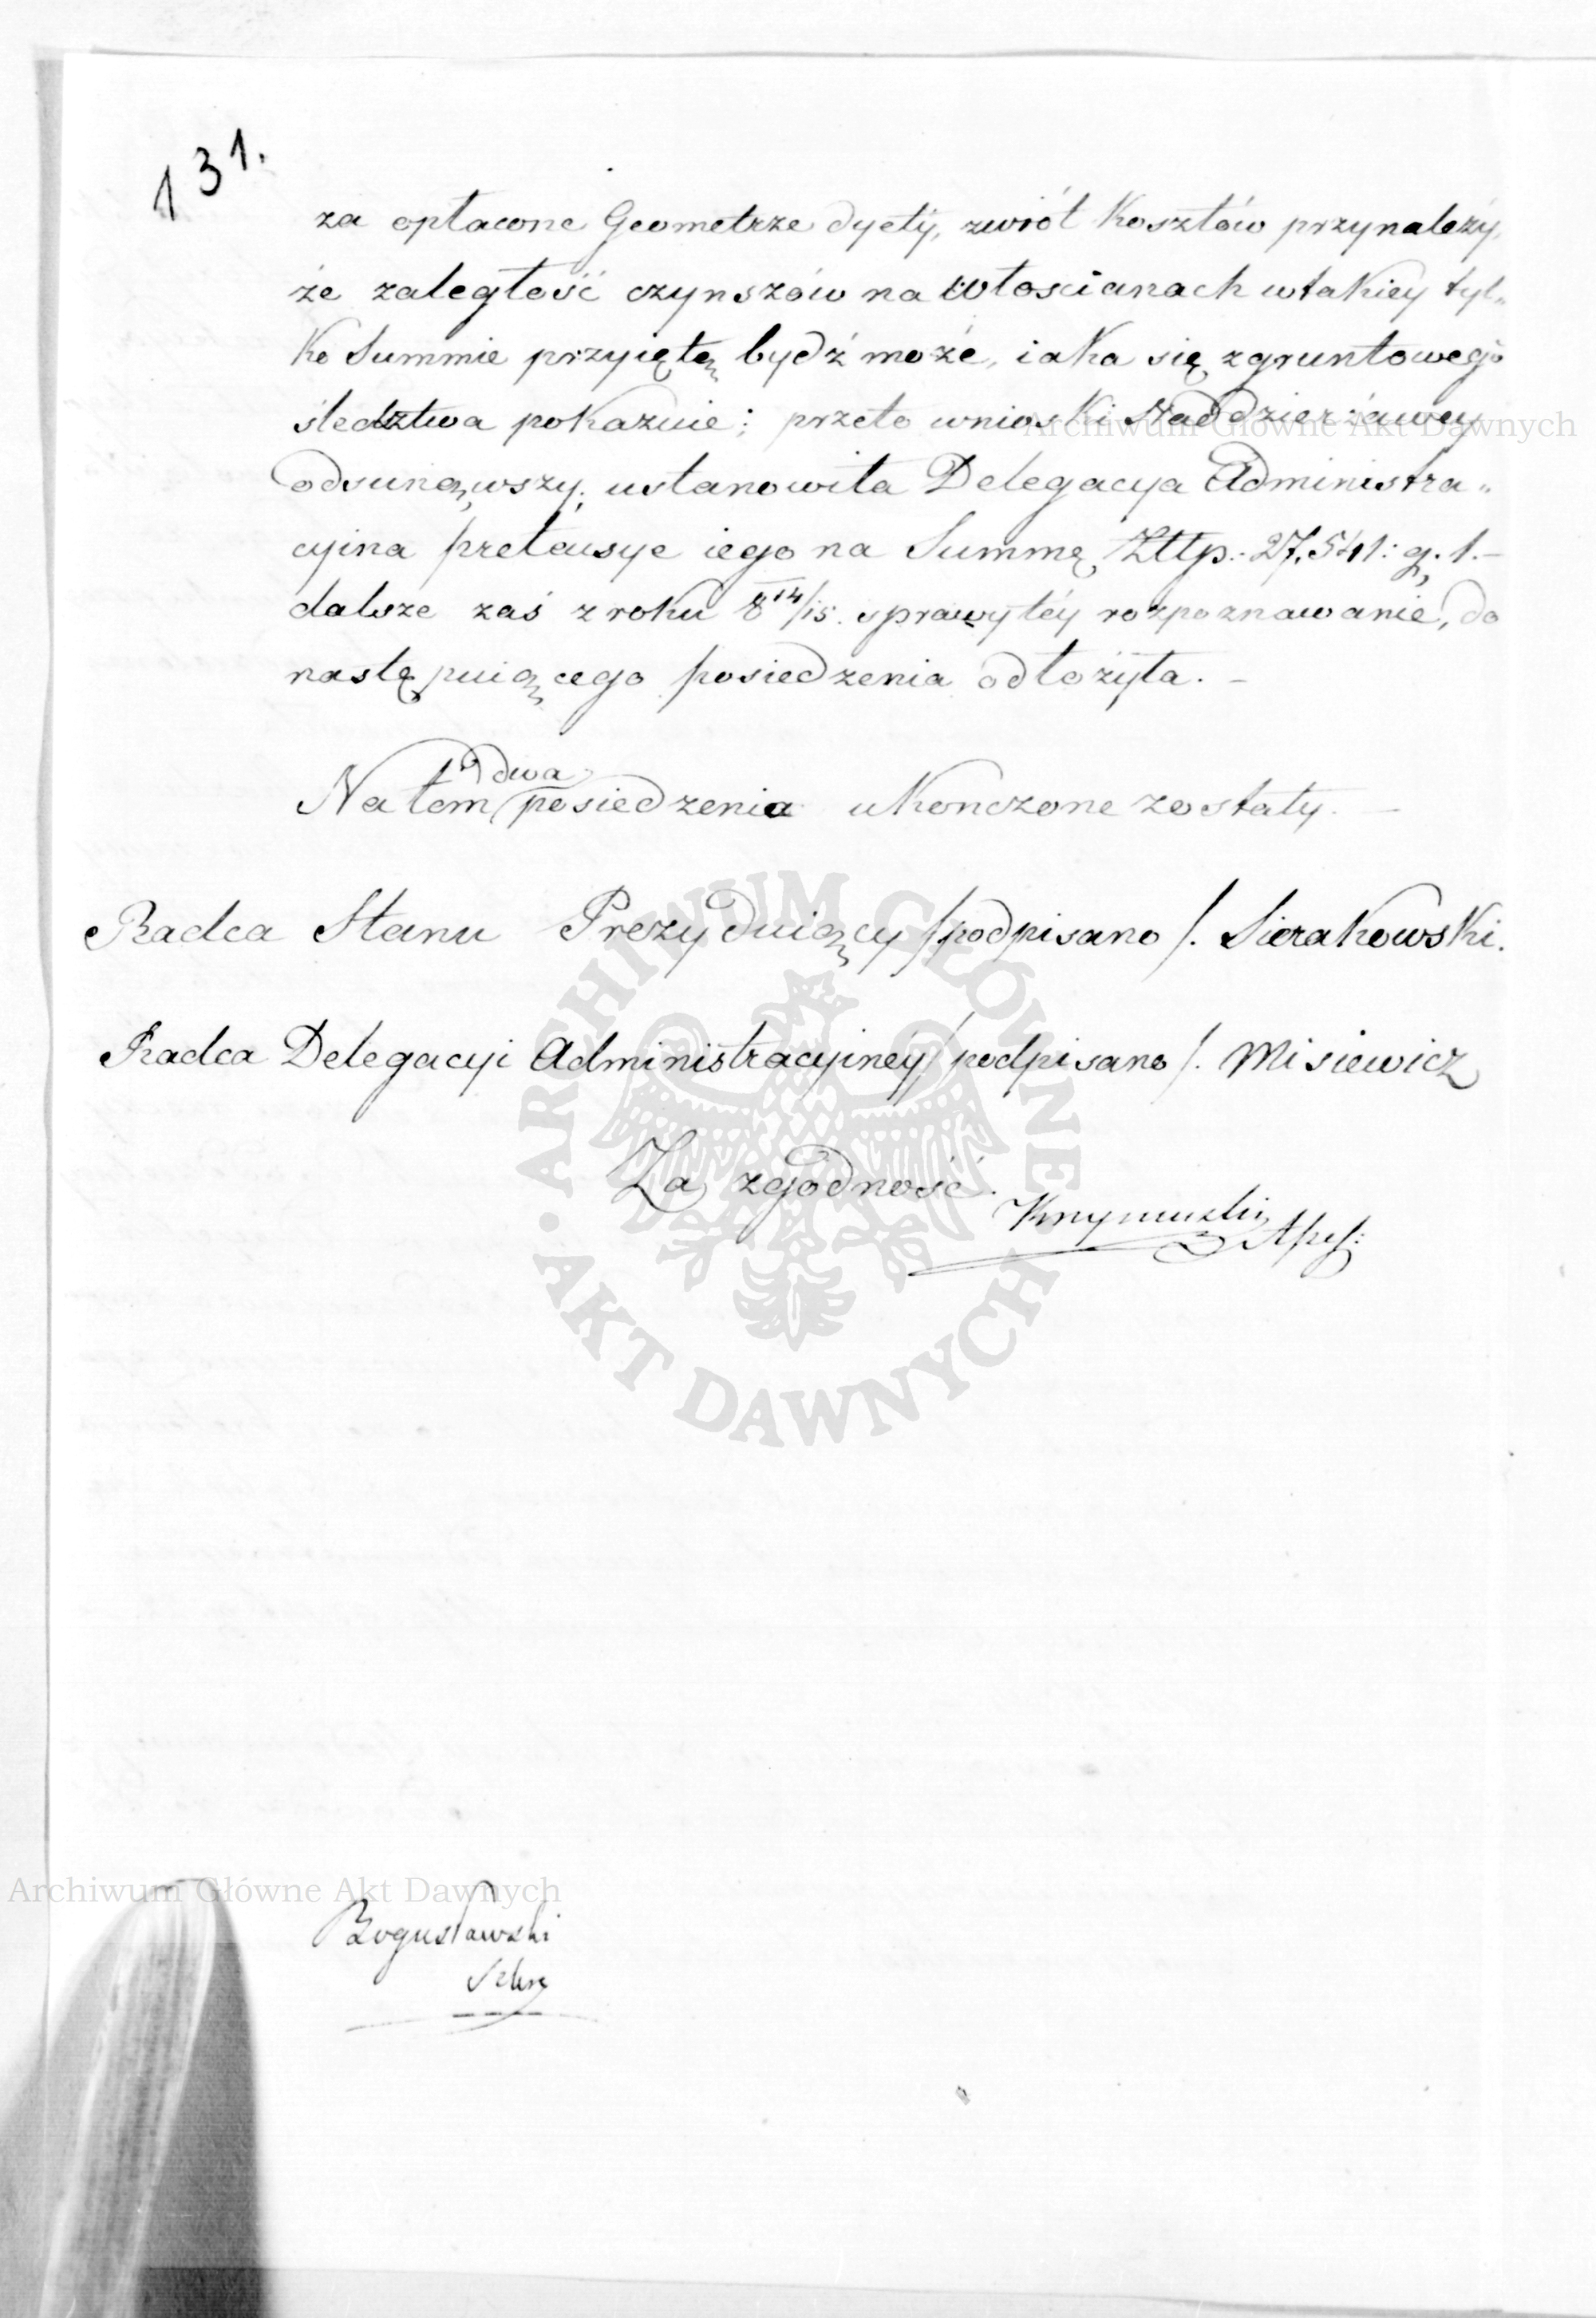 131.
za opłacone Geometrze dyety, zwrót Kosztów przynależy,
że zaległość czynszów na włoscianach wtakiey tyl„
ko Summie przyiętą bydź może, iaka się zgruntowego
śledztwa pokazuie; przeto wnioski Naddzierżawcy
Archiwum Główne Akt Dawnych
odsunąwszy, ustanowiła Delegacya Administra„
cyina pretensye iego na Summę Złłp. 27,541: g. 1.–
dalsze zaś z roku 8¹⁴/15. sprawy téy rozpoznawanie, do
nastę puiącego posiedzenia odłożyła. –
dwa
Na tem posiedzenia ukonczone zostały. –
Radca Stanu Prezyduiący /podpisano/. Sierakowski.
Radca Delegacyi Administracyinéy /podpisano/. Misiewicz
ARCHIWUM GŁÓWNE • AKT DAWNYCH •
Za zgodność.
Archiwum Główne Akt Dawnych
Bogusławski